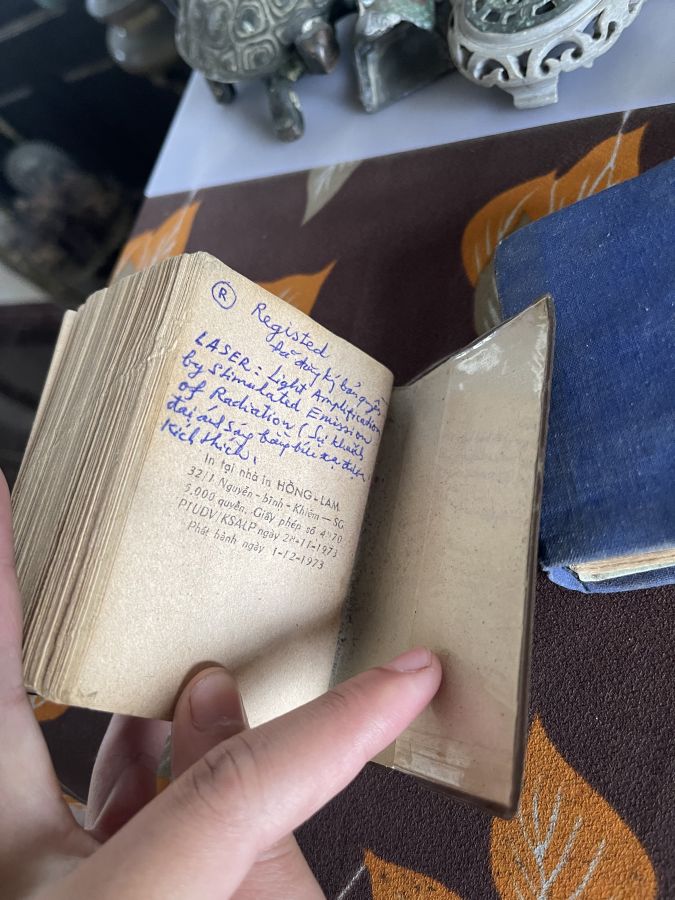 Ⓡ Registed
Đã đăng ký bản quyền
LASER: Light Amplification
by Stimulated Emission
of Radiation (Sự khuếch
đại ánh sáng bằng bức xạ
kích thích.
In tại nhà in HỒNG-LAM
32/1 Nguyễn-bỉnh-Khiêm — SG
5.000 quyển. Giấy phép số
PTUDV/KSALP ngày 28-11-1973
Phát hành ngày 1-12-1973